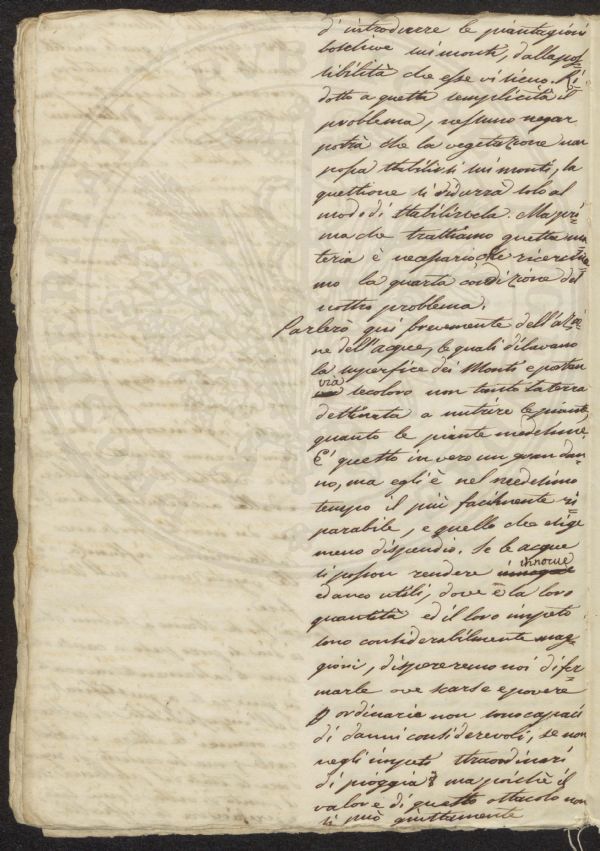 d'introdurre le piantagioni
boschive sui monti, dalla pos=
sibilità che esse vi sieno. Ri=
dotto a questa semplicità il
problema, nessuno negar
potrà che la vegetazione non
possa stabilirsi sui monti, la
questione si ridurrà solo al
modo di stabilirvela. Ma pri=
ma che trattiamo questa ma=
teria è necessario che ricerchia=
mo la quarta condizione del
nostro problema.
Parlerò qui brevemente dell'azio=
ne dell'acque, le quali dilavano
la superfice dei Monti e portan
via secoloro non tanto la terra
destinata a nutrire le piante
quanto le piante medesime.
E' questo in vero un gran dan=
no, ma egli è nel medesimo
tempo il più facilmente ri=
parabile, e quello che esige
meno dispendio. Se le acque
si posson rendere innocue
ed anco utili, dove è la loro
quantità ed il loro impeto
sono considerabilmente mag=
giori, dispereremo noi di fer=
marle ove scarse e povere
d'ordinario non sono capaci
di danni considerevoli, se non
negli impeti straordinari
di pioggia? ma poichè il
valore di questo ostacolo non
si può giustamente